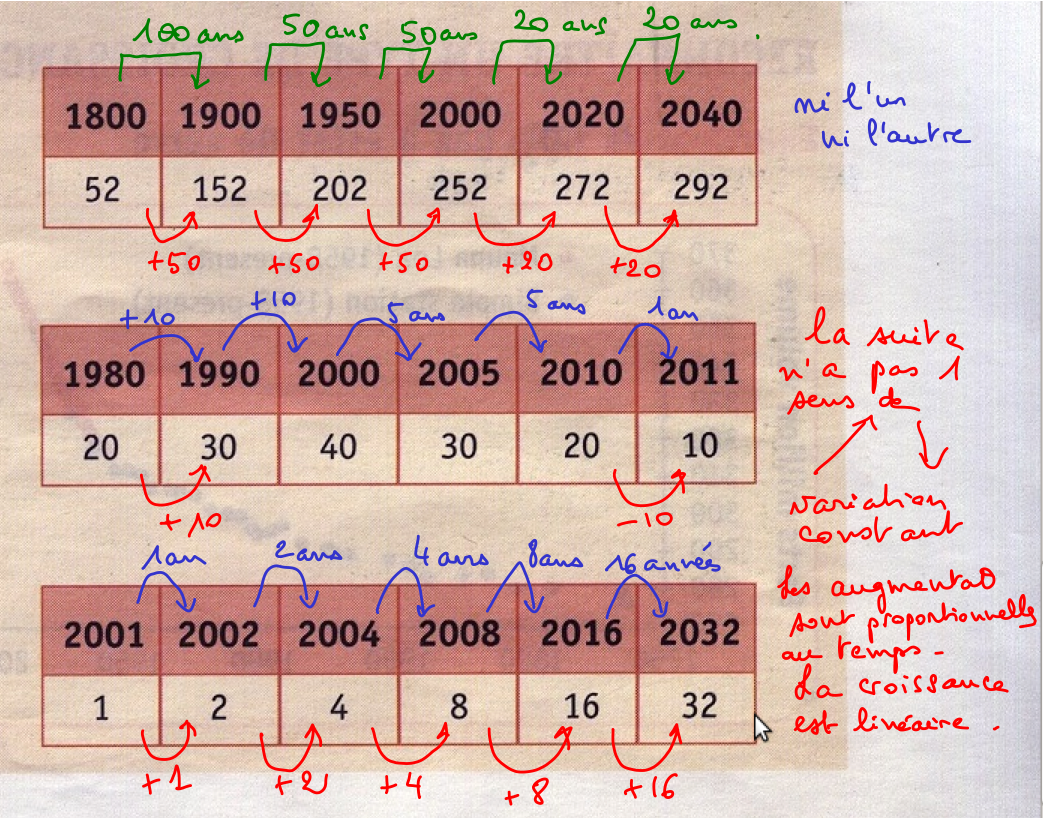 100 ans 50 ans 50 ans 20 ans 20 ans.
1800 1900 1950 2000 2020 2040
ni l'un
ni l'autre
52 152 202 252 272 292
+50 +50 +50 +20 +20
+10 +10 5 ans 5 ans 1 an
1980 1990 2000 2005 2010 2011
20 30 40 30 20 10
+10 -10
la suite
n'a pas 1
sens de
variation
constant
1 an 2 ans 4 ans 8 ans 16 années
2001 2002 2004 2008 2016 2032
1 2 4 8 16 32
+1 +2 +4 +8 +16
Les
sont proportionnelles
au temps.
La croissance
est linéaire.